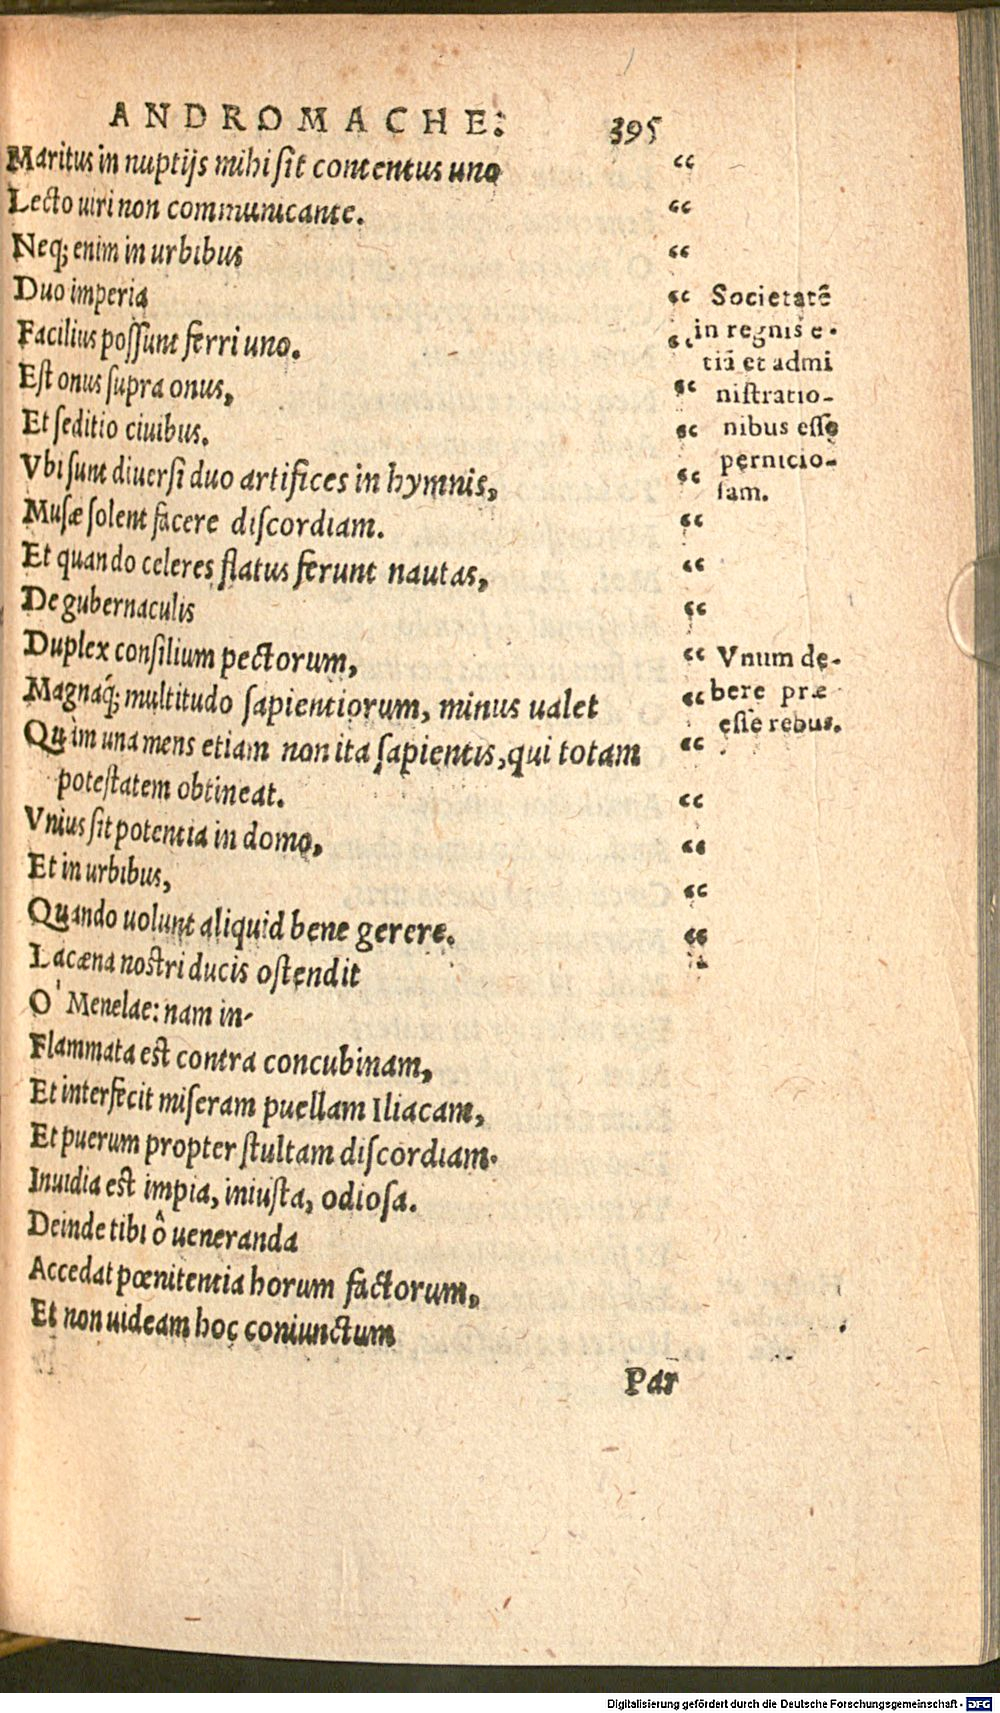 ANDROMACHE. 395
Maritus in nuptijs mihi sit contentus uno
Lecto uiri non communicante.
Neq; enim in urbibus
Duo imperia
Facilius possunt ferri uno.
Est onus supra onus,
Et seditio ciuibus.
Vbi sunt diuersi duo artifices in hymnis,
Musæ solent facere discordiam.
Et quando celeres flatus ferunt nautas,
De gubernaculis
Duplex consilium pectorum,
Magnaq́; multitudo sapientiorum, minus ualet
Quàm una mens etiam non ita sapientis, qui totam
potestatem obtineat.
Vnius sit potentia in domo,
Et in urbibus,
Quando uolunt aliquid bene gerere.
Lacæna nostri ducis ostendit
O' Menelae: nam in-
Flammata est contra concubinam,
Et interfecit miseram puellam Iliacam,
Et puerum propter stultam discordiam.
Inuidia est impia, iniusta, odiosa.
Deinde tibi ô ueneranda
Accedat pœnitentia horum factorum,
Et non uideam hoc coniunctum
Par
Societatē
in regnis e-
tiā et admi
nistratio-
nibus esse
pernicio-
sam.
Vnum de-
bere præ
esse rebus.
Digitalisierung gefördert durch die Deutsche Forschungsgemeinschaft - DFG